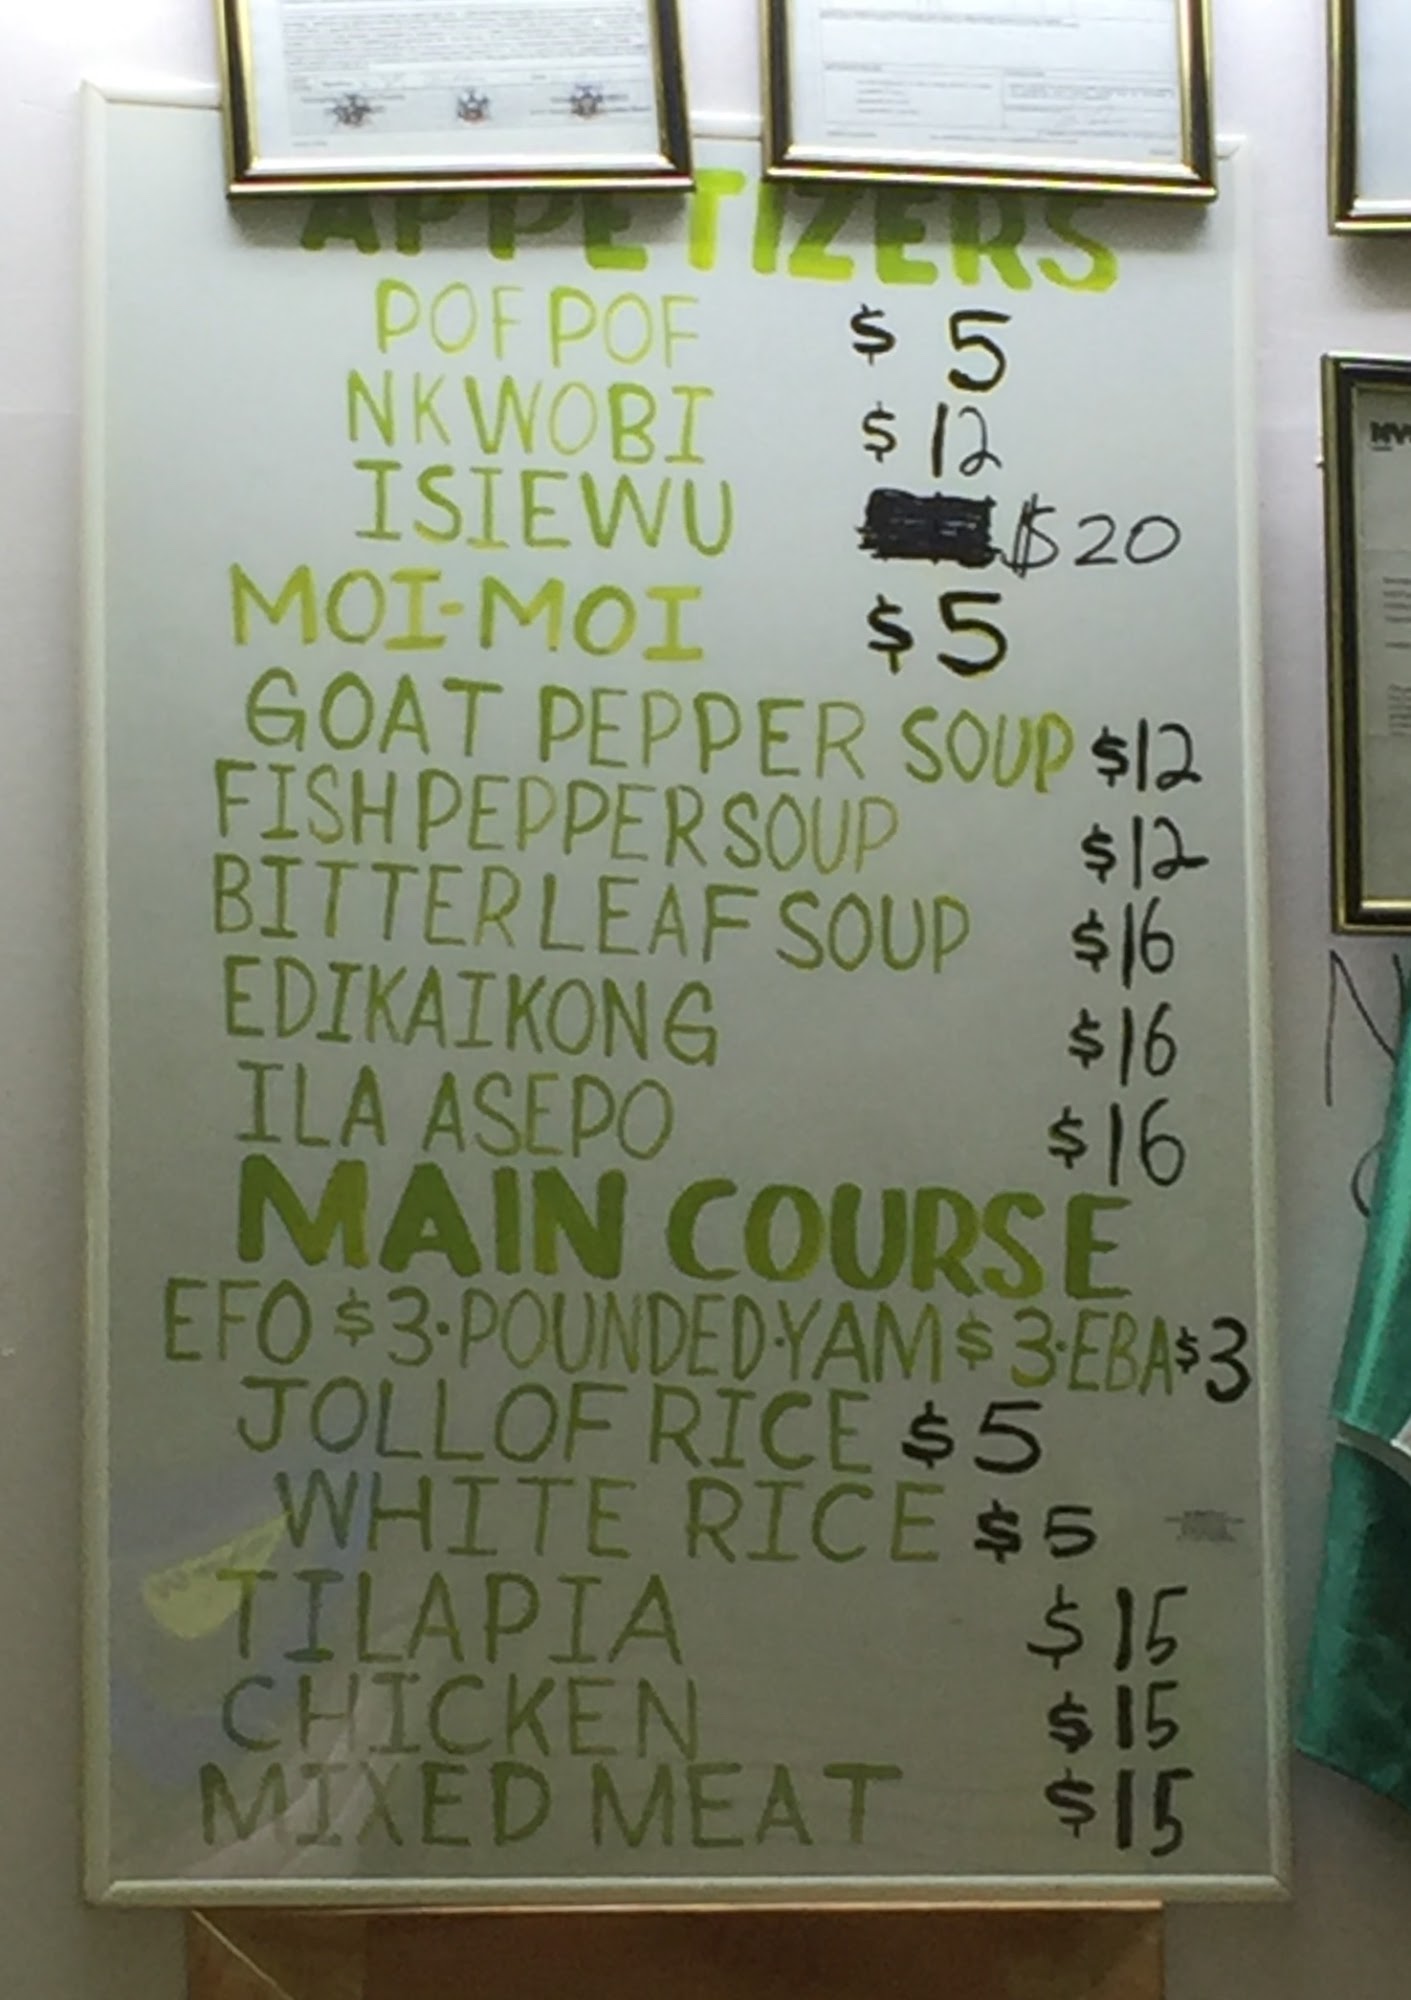 APPETIZERS
POF POF $ 5
NKWOBI $ 12
ISIEWU $20
MOI-MOI $5
GOAT PEPPER SOUP $12
FISH PEPPER SOUP $12
BITTER LEAF SOUP $16
EDIKAIKONG $16
ILA ASEPO $16
MAIN COURSE
EFO $3·POUNDED·YAM $3·EBA $3
JOLLOF RICE $5
WHITE RICE $5
TILAPIA $15
CHICKEN $15
MIXED MEAT $15